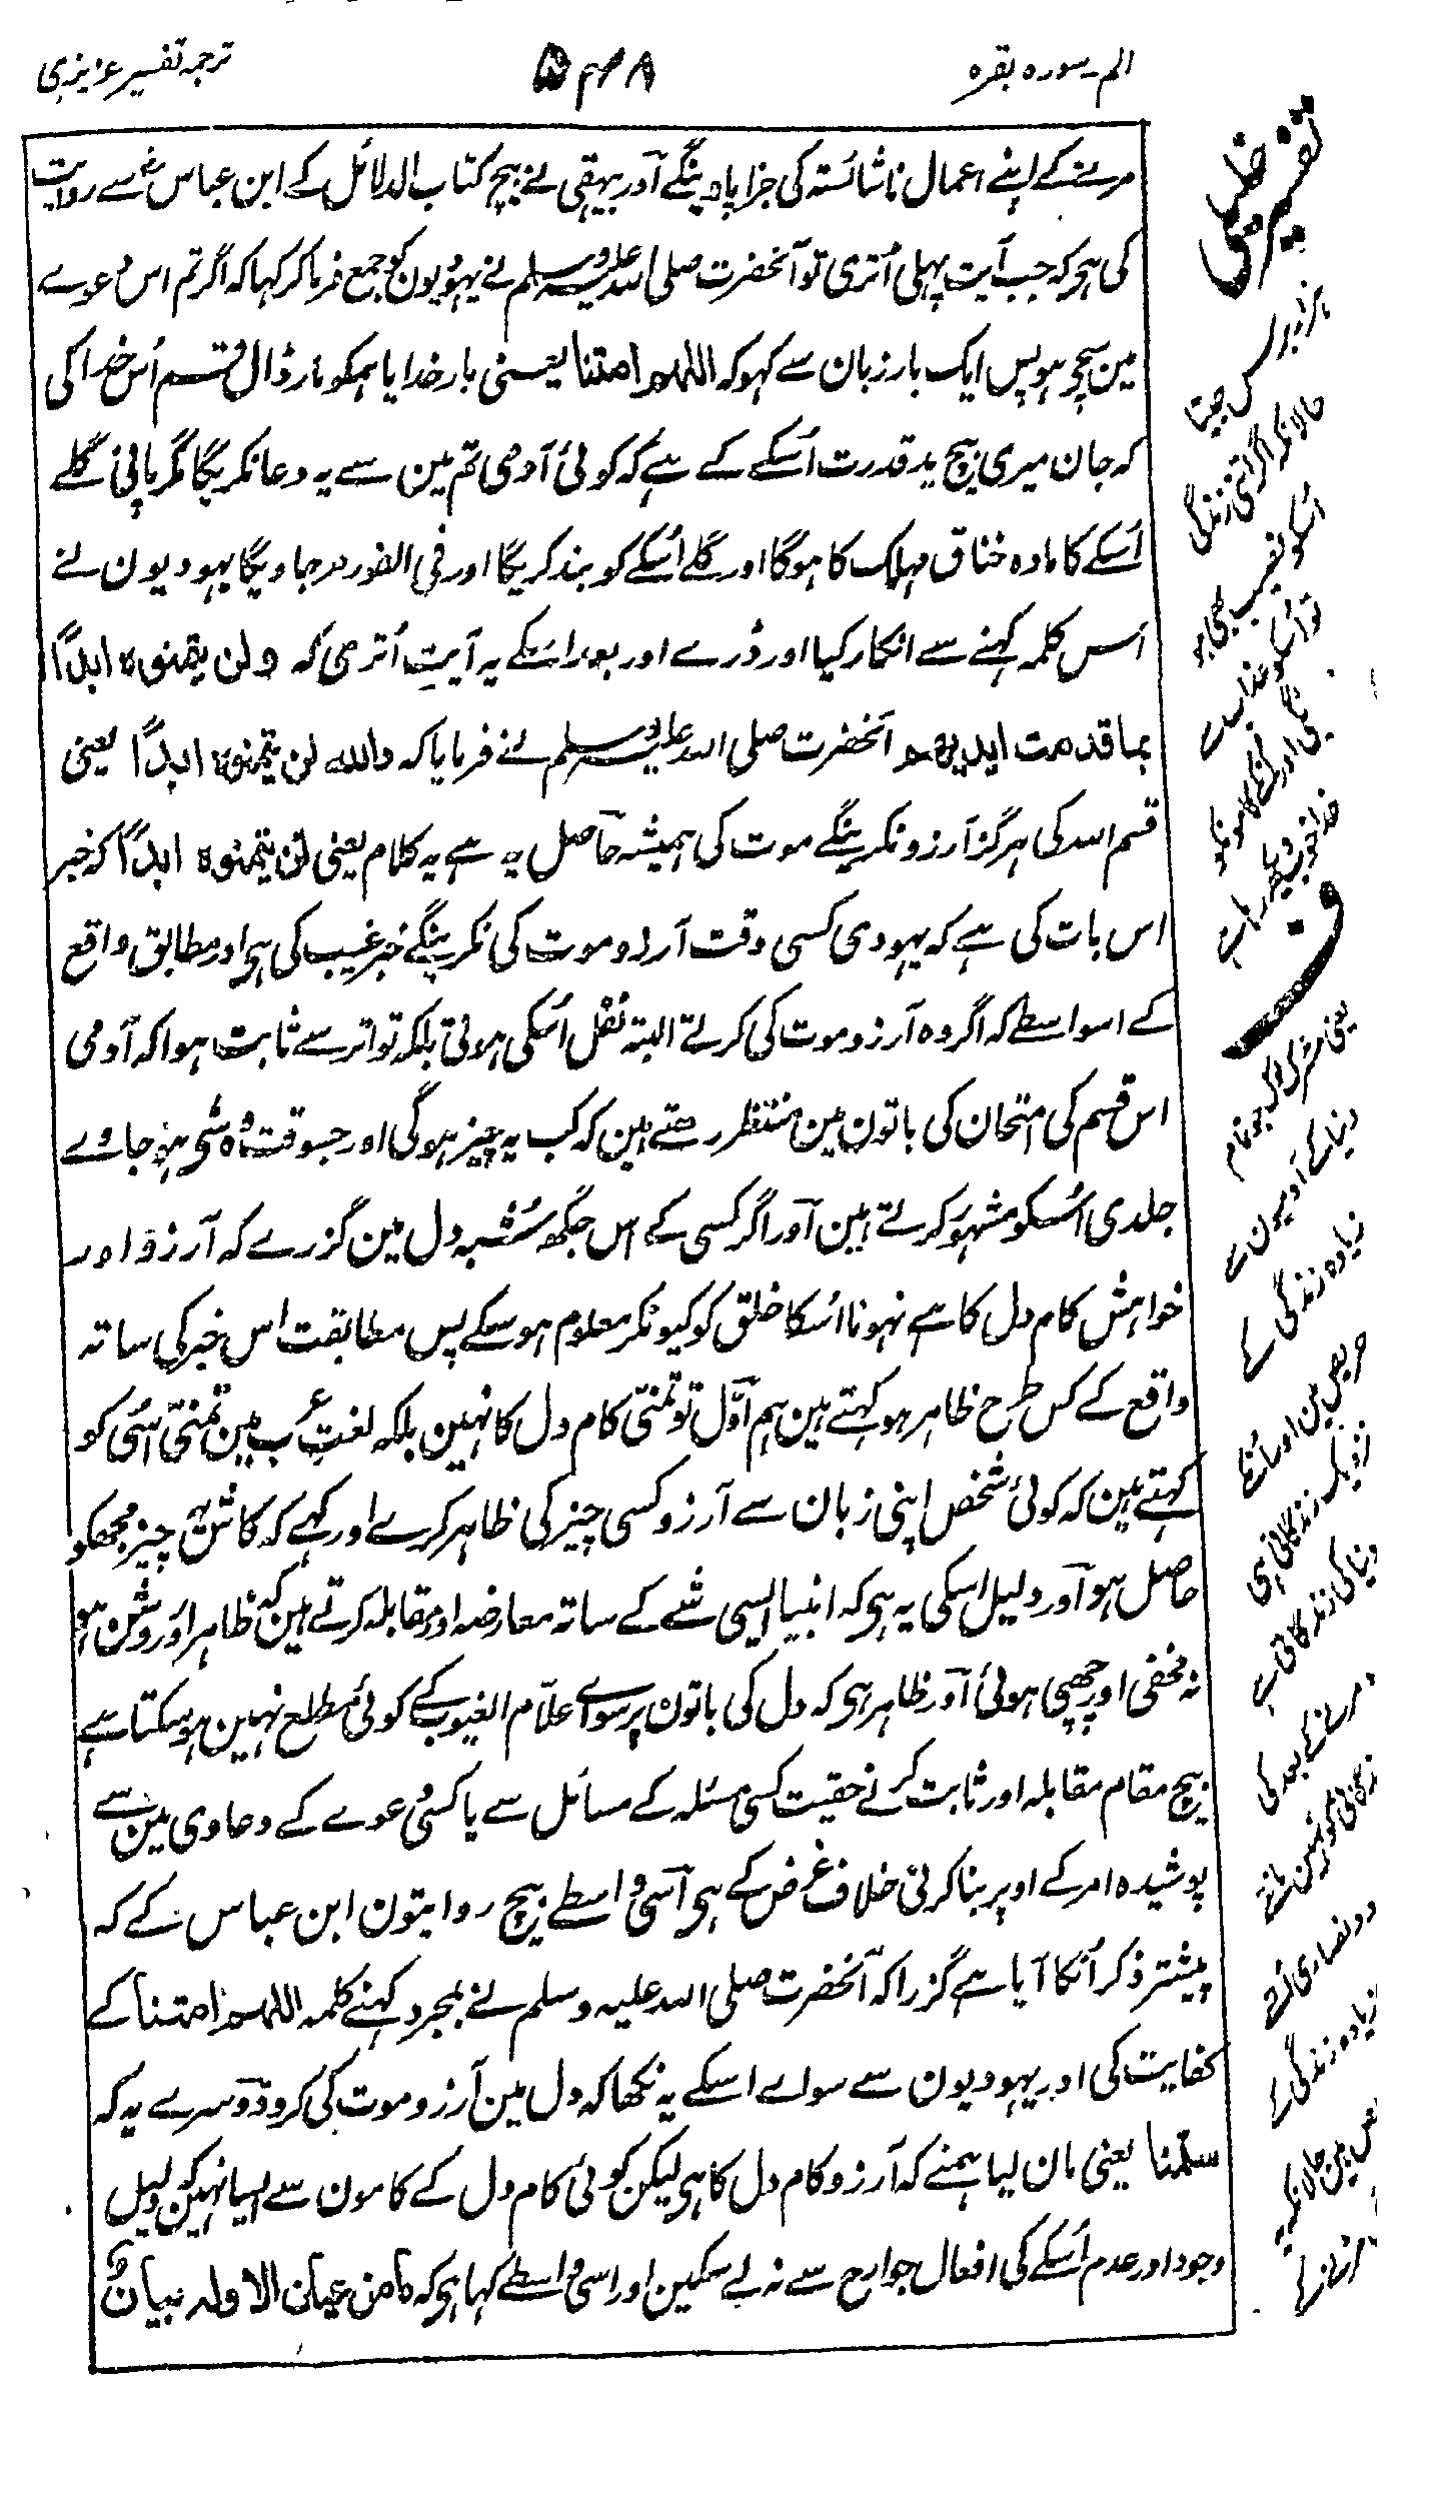 الم۔ سورہ بقرہ
۵۴۸
ترجمہ تفسیر عزیزی
مرنیکے اپنے اعمال ناشائستہ کی جزا پاوینگے اور بیہقی نے بیچ کتاب الدلائل کے ابن عباس رضؓ سے روایت
کی ہی کہ جب آیت پہلی اُتری تو آنحضرت صلی اللہ علیہ وسلم نے یہودیون کو جمع فرما کر کہا کہ اگر تم اس دعوے
مین سچے ہو پس ایک بار زبان سے کہو کہ اللهم امتنا یعنی بار خدایا ہمکو مار ڈال قسم اُس خدا کی
کہ جان میری بیچ ید قدرت اُسکے کے ہے کہ کوئی آدمی تم مین سے یہ دعا نکریگا مگر پانی گلے
اُسکے کا مادہ خناق مہلک کا ہوگا اور گلے اُسکے کو بند کریگا اور فی الفور مرجاویگا یہودیون نے
اس کلمہ کہنے سے انکار کیا اور ڈرے اور بعد اسکے یہ آیت اُتری کہ ولن یتمنوہ ابداً
بما قدمت ایدیهم آنحضرت صلی اللہ علیہ وسلم نے فرمایا کہ واللہ لن یتمنوہ ابداً یعنی
قسم اللہ کی ہرگز آرزو نکرینگے موت کی ہمیشہ حاصل یہ ہے یہ کلام یعنی لن یتمنوہ ابداً کہ خبر
اس بات کی ہے کہ یہودی کسی وقت آرزو موت کی نکرینگے خبر غیب کی ہی اور مطابق واقع
کے اسواسطے کہ اگر وہ آرزو موت کی کرتے البتہ نقل اُسکی ہوتی بلکہ تواتر سے ثابت ہوا کہ آدمی
اس قسم کی امتحان کی باتون مین منتظر رہتے ہین کہ کب یہ چیز ہوگی اور جسوقت وہ شی ہو جاوے
جلدی اُسکو مشہور کرتے ہین اور اگر کسی کے اس جگھ شبہ دل مین گزرے کہ آرزو اور
خواہش کام دل کا ہے نہونا اُسکا خلق کو کیونکر معلوم ہو سکے پس مطابقت اس خبر کی ساتہ
واقع کے کس طرح ظاہر ہو کہتے ہین ہم اوّل تو تمنّی کام دل کا نہین بلکہ لغت عرب مین تمنّی اسی کو
کہتے ہین کہ کوئی شخص اپنی زبان سے آرزو کسی چیز کی ظاہر کرے اور کہے کہ کاش یہ چیز مجھکو
حاصل ہو اور دلیل اسکی یہ ہی کہ انبیا ایسی شے کے ساتہ معارضہ اور مقابلہ کرتے ہین کہ ظاہر اور روشن ہو
نہ مخفی اور چھپی ہوئی اور ظاہر ہی کہ دل کی باتون پر سوائے علّام الغیوب کے کوئی مطلع نہین ہو سکتا ہے
بیچ مقام مقابلہ اور ثابت کرنے حقیت کسی مسئلہ کے مسائل سے یا کسی دعوے کے دعاوی مین سے
پوشیدہ امر کے اوپر بنا کرنی خلاف غرض کے ہی اسی واسطے بیچ روایتون ابن عباس کے کہ
پیشتر ذکر اُنکا آیا ہے گزرا کہ آنحضرت صلی اللہ علیہ وسلم نے بمجرد کہنے کلمہ اللهم امتنا کے
کفایت کی اور یہودیون سے سوائے اسکے یہ نکہا کہ دل مین آرزو موت کی کرو دوسرے یہ کہ
سلمنا یعنی مان لیا ہمنے کہ آرزو کام دل کا ہی لیکن کوئی کام دل کے کامون سے ایسا نہین کہ دلیل
وجود اور عدم اُسکے کی افعال جوارح سے نہ لے سکین اور اسی واسطے کہا ہی کہ مامن عیان الا ولہ بیان
حالانکہ اگر اتنی زندگی
یعنی مشرک لوگ جو تمام
دنیا کے آدمیون سے
زیادہ زندگی کے
حریص ہین
دنیا کی زندگانی ہے
زیادہ زندگی کے